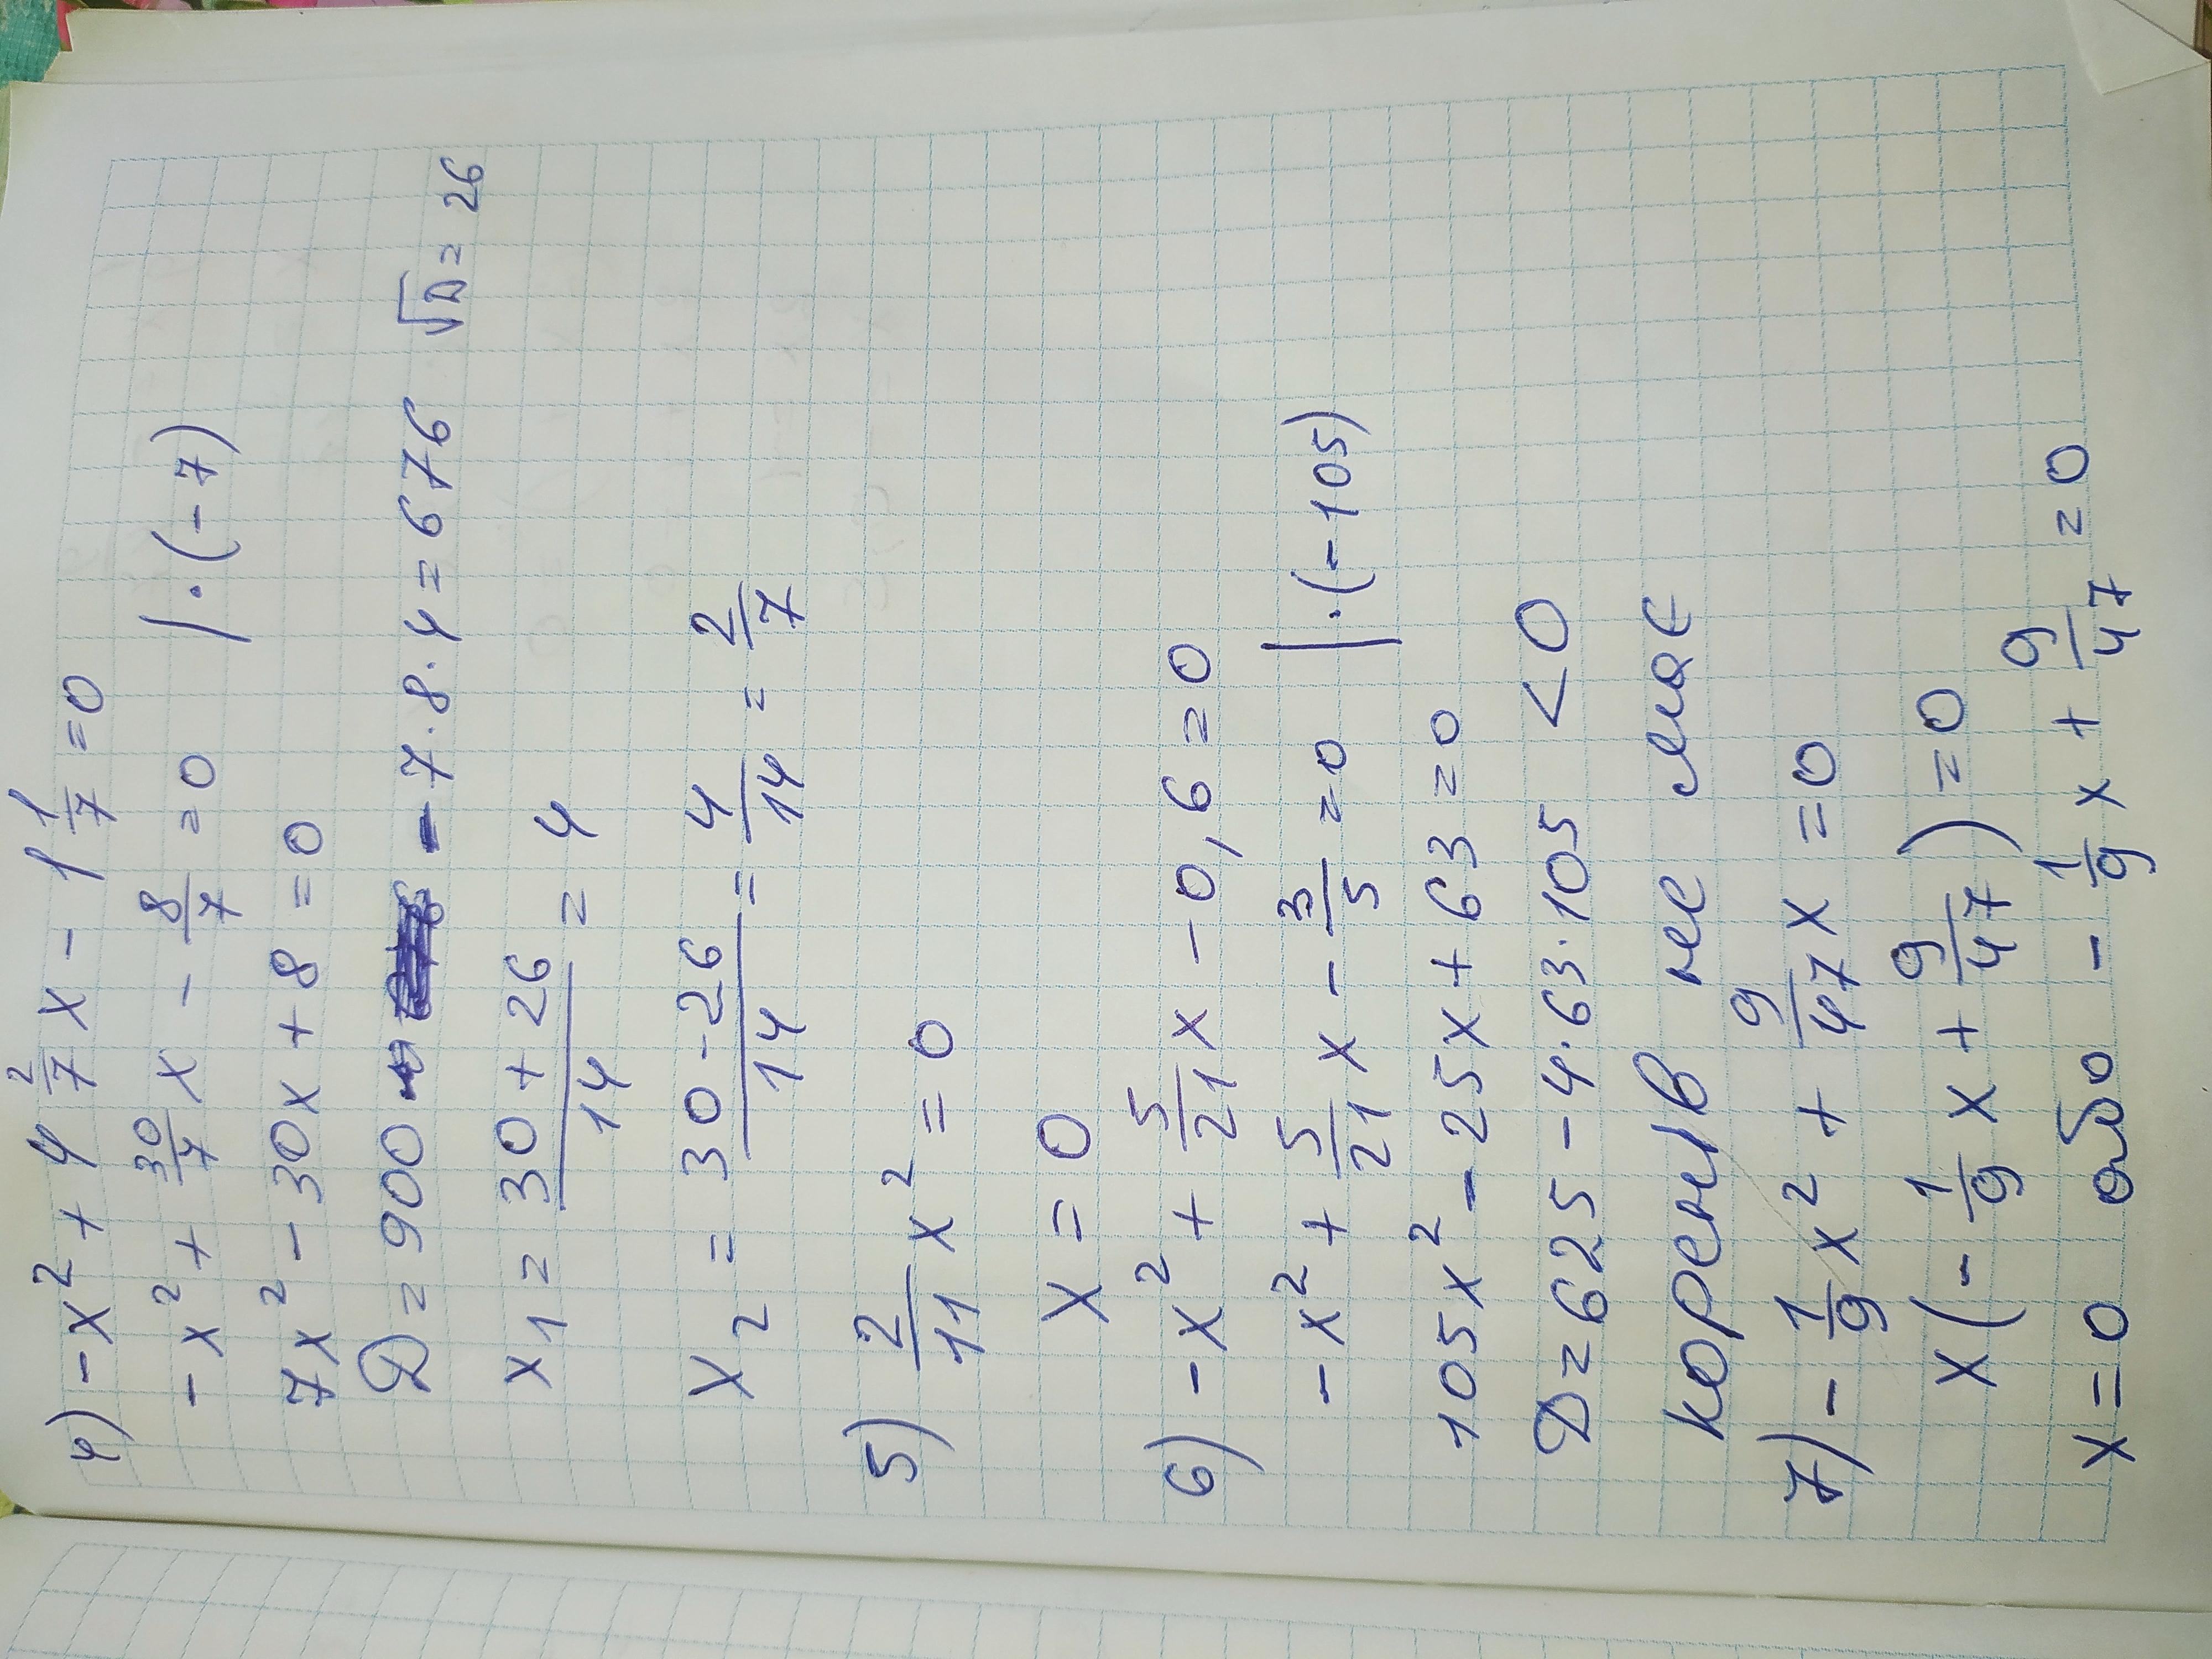 4) -x² + 4 2/7 x - 1 1/7 = 0
-x² + 30/7 x - 8/7 = 0 | · (-7)
7x² - 30x + 8 = 0
D = 900 - 7 · 8 · 4 = 676 √D = 26
x₁ = (30 + 26)/14 = 4
x₂ = (30 - 26)/14 = 4/14 = 2/7
5) 2/11 x² = 0
x = 0
6) -x² + 5/21 x - 0,6 = 0
-x² + 5/21 x - 3/5 = 0 | · (-105)
105x² - 25x + 63 = 0
D = 625 - 4 · 63 · 105 < 0
коренів не має
7) - 1/9 x² + 9/47 x = 0
x(- 1/9 x + 9/47) = 0
x = 0 або - 1/9 x + 9/47 = 0